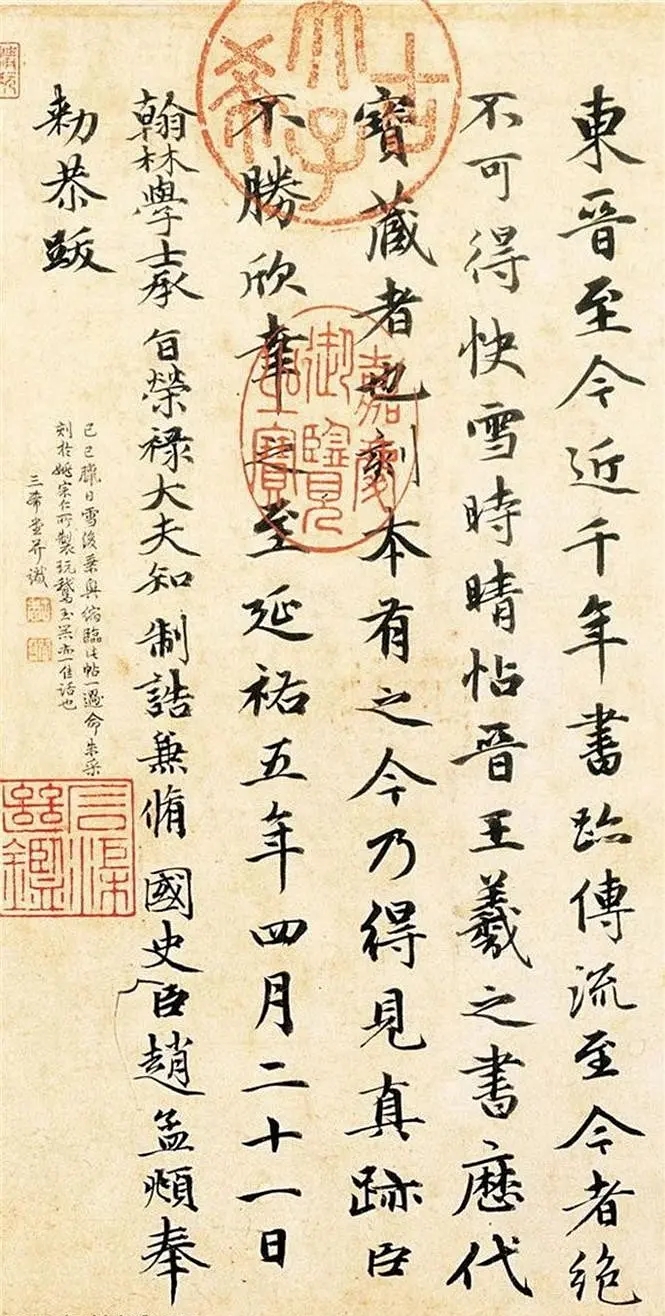 東晉至今近千年書跡傳流至今者絕
不可得快雪時晴帖晉王羲之書歷代
寶藏者也刻本有之今乃得見真跡臣
不勝欣幸之至延祐五年四月二十一日
翰林學士承旨榮祿大夫知制誥兼脩國史臣趙孟頫奉
勅恭跋
己巳臘日雪後乘興縮臨此帖一過命朱采
刻於姚宗仁所製玩鵞玉器亦一佳話也
三希堂并識
古希天子
嘉慶御覽之寶